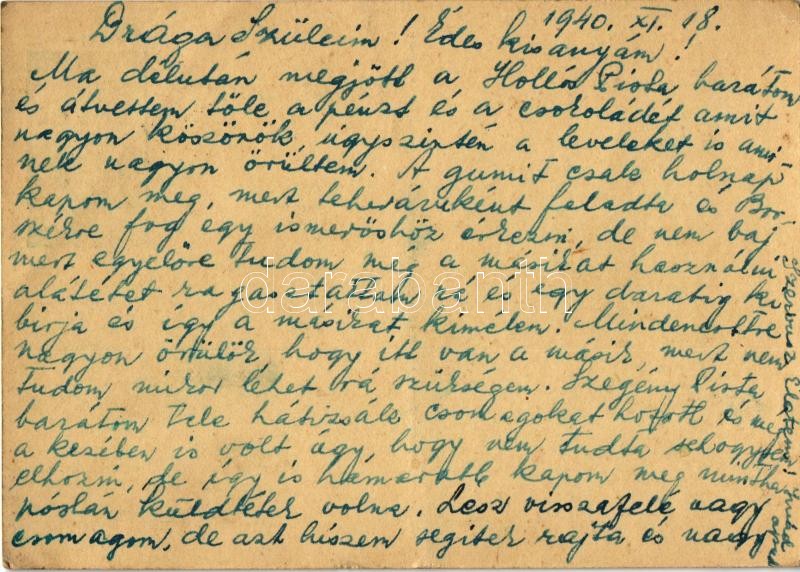 1940. XI. 18.
Drága Szüleim! Édes kisanyám!
Ma délután megjött a Hollós Pista barátom
és átvettem tőle a pénzt és a csokoládét amit
nagyon köszönök, úgyszintén a leveleket is ami
nek nagyon örültem. A gumit csak holnap
kapom meg, mert teheráruként feladta és Bor
székre fog egy ismerőshöz érkezni, de nem baj
mert egyelőre tudom még a másikat használni
alátétet ragasztattam rá és így darabig ki
birja és így a másikat kimélem. Mindenesetre
nagyon örülök, hogy itt van a másik, mert nem
tudom mikor lehet rá szükségem. Szegény Pista
barátom tele hátizsák csomagokat hozott és még
a kezében is volt úgy, hogy nem tudta sehogysem
elhozni, de így is hamarabb kapom meg mintha
póstán küldtétek volna. Lesz visszafelé nagy
csomagom, de azt hiszem segitek rajta és nagy
Szervusz Életem!
darabanth